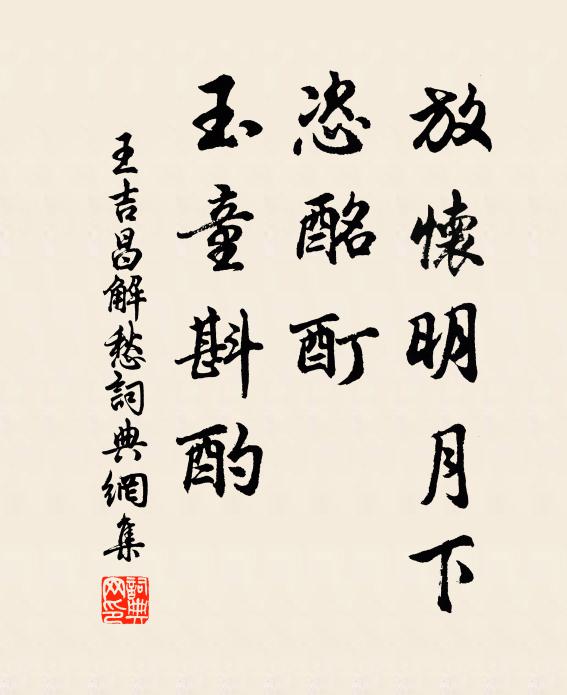 放懷明月下
恣酩酊
玉童斟酌
王吉昌解愁詞典網集
詞典網印